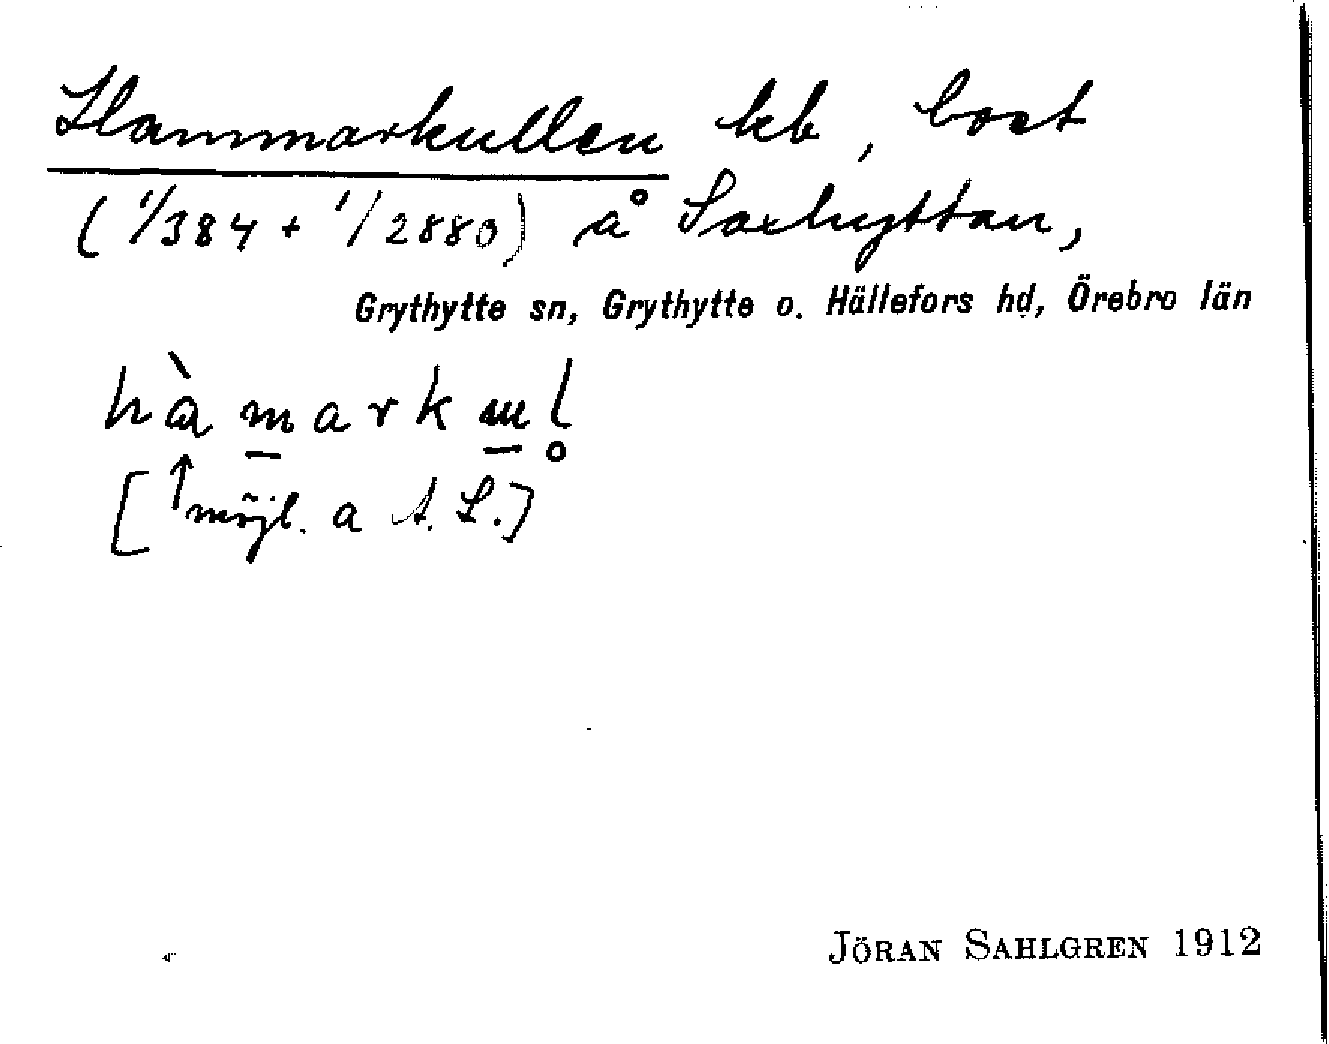 Hammarkullen kb, bost
(1/384 + 1/2880) å Saxhyttan,
Grythytte sn, Grythytte o. Hällefors hd, Örebro län
hàmarkul̥
[↑möjl. a t. L.]
JÖRAN SAHLGREN 1912